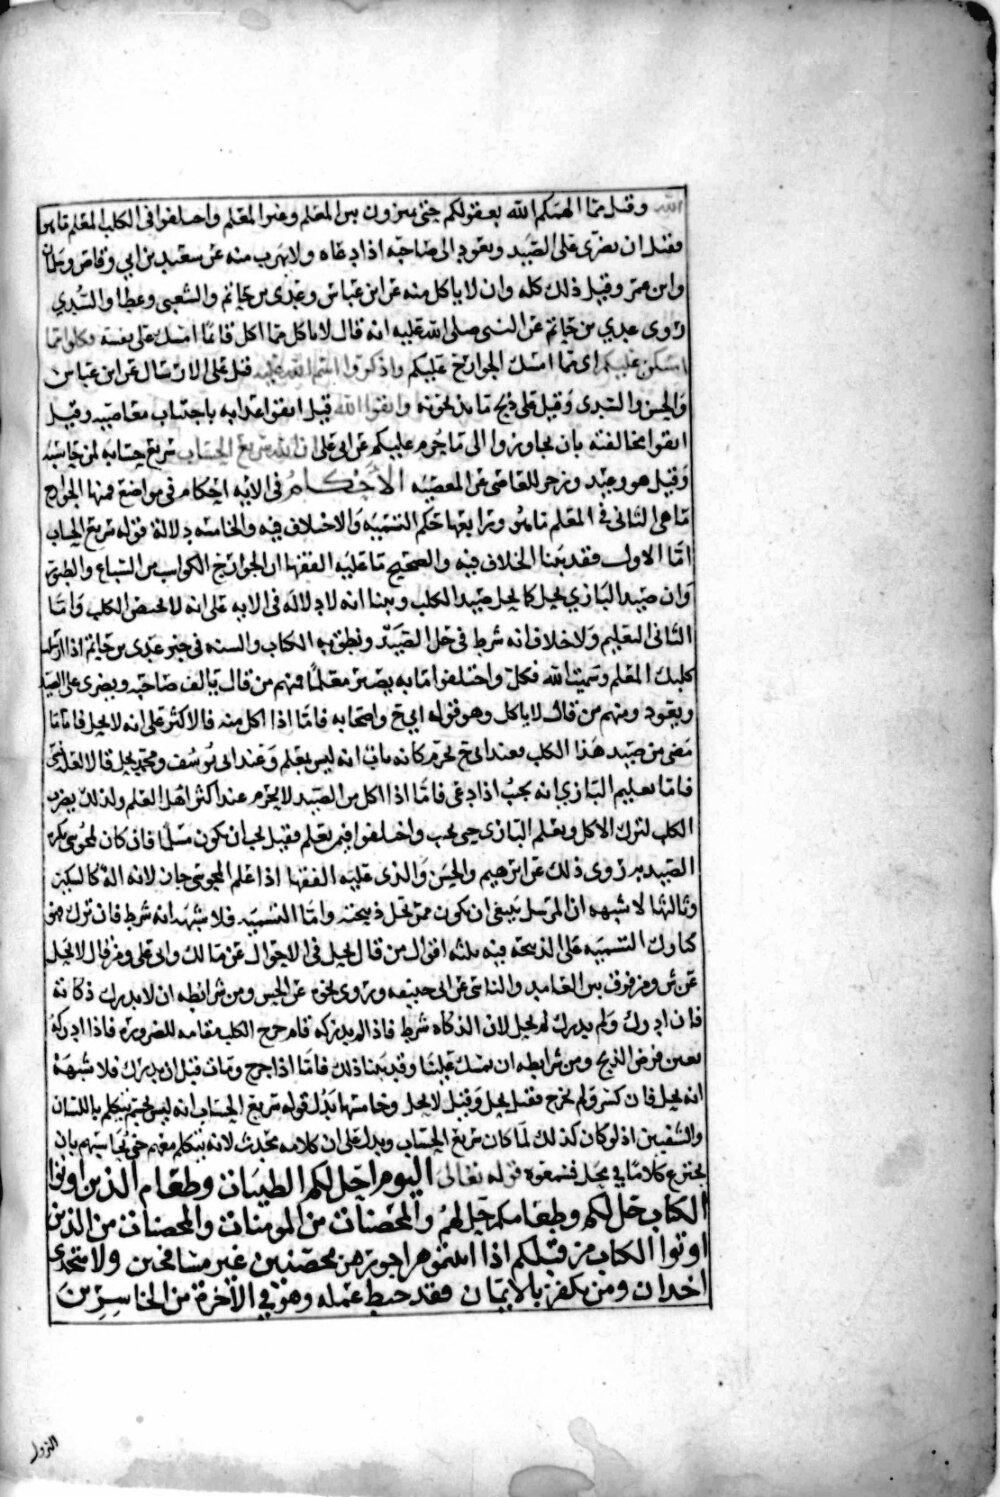 الله وقيل مما الهمكم الله بعقولكم حتى ميزون بين المعلم وغير المعلم واختلفوا في الكلب المعلم ما هو
فقيل ان يضرى على الصيد ويعود الى صاحبه اذا دعاه ولا يهرب منه عن سعيد بن ابي وقاص وسلمان
وابن عمر وقيل ذلك كله وان لا ياكل منه عن ابن عباس وعدي بن حاتم والشعبي وعطا والسدي
روى عدي بن حاتم عن النبي صلى الله عليه انه قال لا تاكل مما اكل فانما امسك على نفسه فكلوا مما
امسكن عليكم اي مما امسك الجوارح عليكم واذكروا اسم الله عليه قيل على الارسال عن ابن عباس
والحسن والسدي وقيل على ذبح ما يذبحونه واتقوا الله قيل اتقوا عذابه باجتناب معاصيه وقيل
اتقوا مخالفته بان تجاوزوا الى ما حرم عليكم عن ابي علي ان الله سريع الحساب سريع حسابه لمن حاسبه
وقيل هو وعيد وزجر للعاصي عن المعصيه الأحكام في الايه احكام في مواضع فمنها الجوارح
ما هي الثاني في المعلم ما هو ورابعها حكم التسميه والاختلاف فيه والخامسه دلالة قوله سريع الحساب
امّا الاول فقد بينا الخلاف فيه والصحيح ما عليه الفقها ان الجوارح الكواسب من السباع والطير
وان صيد البازي يحل كما يحل صيد الكلب وبينا انه لا دلاله في الايه على انه لا يحل غير الكلب وامّا
الثاني التعليم ولا خلاف انه شرط في حل الصيد ونطق به الكتاب والسنه في خبر عدي بن حاتم اذا ارسلت
كلبك المعلم وسميت الله فكل واختلفوا ما به يصير معلمًا فمنهم من قال يالف صاحبه ويضرى على الصيد
ويعود ومنهم من قال لا ياكل وهو قول ابي ح واصحابه فامّا اذا اكل منه فالاكثر على انه لا يحل فامّا ما
مضى من صيد هذا الكلب فعند ابي ح يحرم كانه بان انه ليس بعلم وعند ابي يوسف ومحمد يحل
فامّا تعليم البازي انه يجيب اذا دعي فامّا اذا اكل من الصيد لا يحرم عند اكثر اهل العلم ولذلك يضرب
الكلب لترك الاكل ويعلم البازي حتى يجيب واختلفوا فيمن يعلم فقيل يجب ان يكون مسلمًا فان كان المجوسي يكره
الصيد به روى ذلك عن ابرهيم والحسن والذي عليه الفقها اذا علم المجوسي جاز لانه الة كالسكين
وثالثها لا شبهه ان المرسل ينبغي ان يكون ممن تحل ذبيحته وامّا التسميه فلا شبهة انه شرط فان ترك فهو
كتارك التسميه على الذبيحه فيه ثلثه اقوال من قال يحل في الاحوال عن مالك وابي علي ومن قال لا يحل
عن ش ومن فرق بين العامد والناسي عن ابي حنيفه وروي نحوه عن الحسن ومن شرائطه ان لا يدرك ذكاته
فان ادرك ولم يدرك لم يحل لان الذكاه شرط فاذا لم يدركه قام جرح الكلب مقامه للضرورة فاذا ادركه
تعين فرض الذبح ومن شرائطه ان تمسك علينا وقد بينا ذلك فامّا اذا جرح ومات قبل ان يدرك فلا شبهة
انه يحل فان كسر ولم يجرح فقيل يحل وقيل لا يحل وخامسها يدل قوله سريع الحساب انه ليس بجسم يتكلم باللسان
والشفتين اذ لو كان كذلك لما كان سريع الحساب ويدل على ان كلامه محدث لانه يتكلم معهم حتى يحاسبهم بان
يخترع كلامًا في محل فسمعوه قوله تعالى اليوم احل لكم الطيبات وطعام الذين اوتوا
الكتاب حل لكم وطعامكم حل لهم والمحصنات من المومنات والمحصنات من الذين
اوتوا الكتاب من قبلكم اذا اتيتموهن اجورهن محصنين غير مسافحين ولا متخذي
اخدان ومن يكفر بالايمان فقد حبط عمله وهو في الآخرة من الخاسرين
النزول